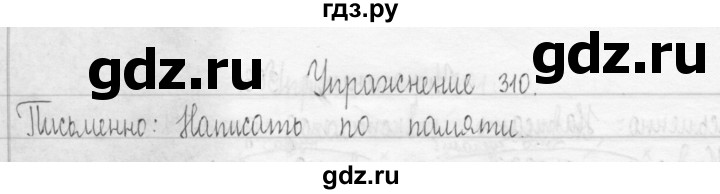 гдз.ру
gdz.ru gdz.ru
Упражнение 310.
Письменно: Написать по памяти.
gdz.ru gdz.ru